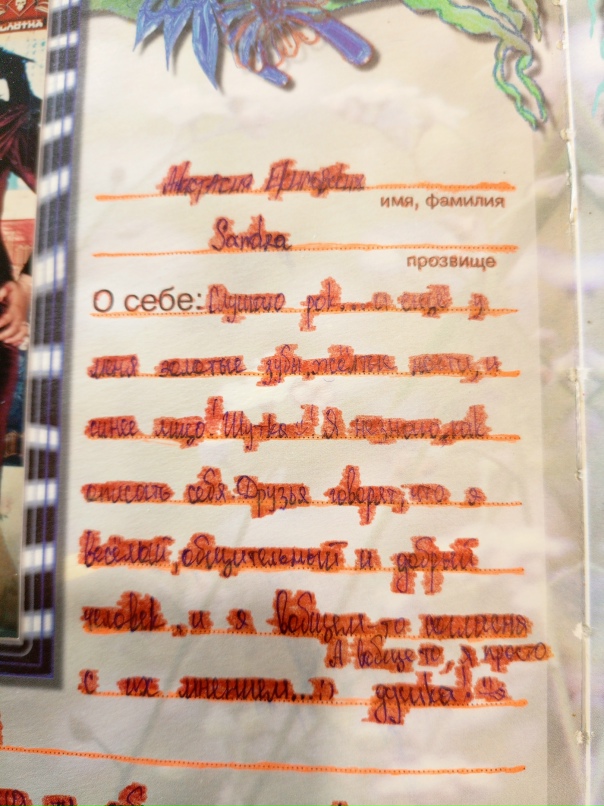 Анастасия
имя, фамилия
Sandra
прозвище
О себе: Слушаю рок... а ещё у
меня золотые зубы, жёлтые и
синее лицо! Шутка! Я не знаю, как
описать себя. Друзья говорят, что я
весёлый, общительный и добрый
человек, и я вобщем-то
А вобще-то, я просто
с их мнением... душка!